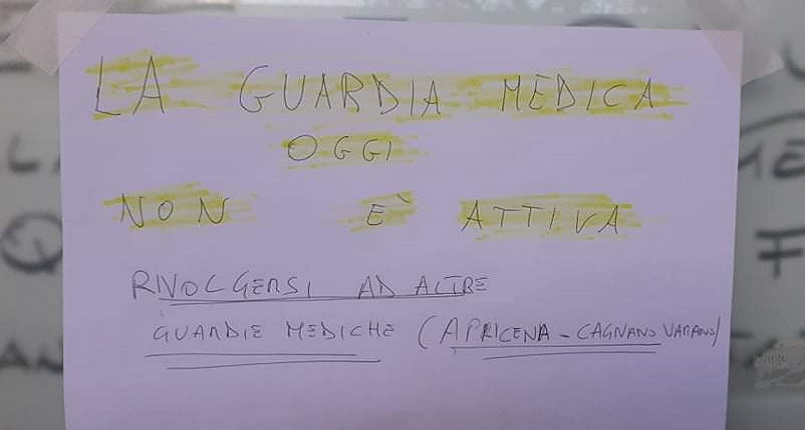 LA GUARDIA MEDICA
OGGI
NON È ATTIVA
RIVOLGERSI AD ALTRE
GUARDIE MEDICHE (APRICENA - CAGNANO VARANO)